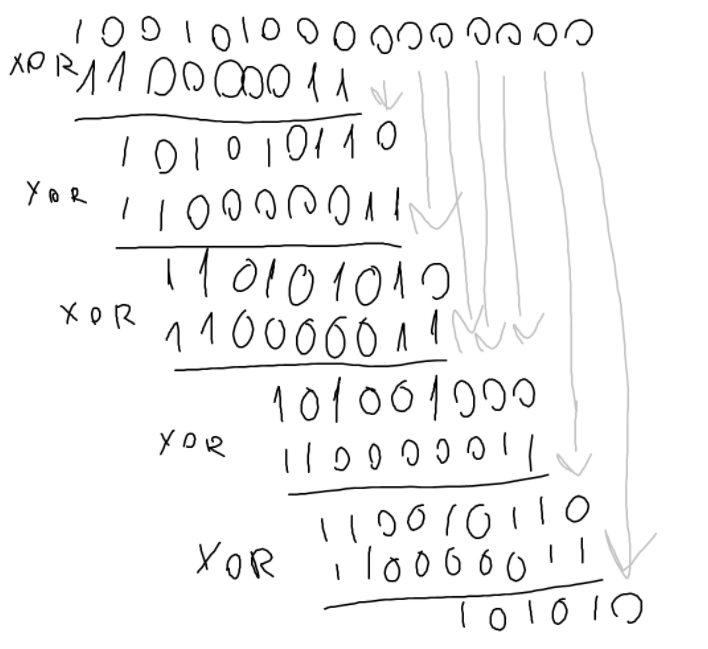 1001010000000000
XOR 110000011
101010110
XOR 110000011
110101010
XOR 110000011
101001000
XOR 110000011
110010110
XOR 110000011
101010